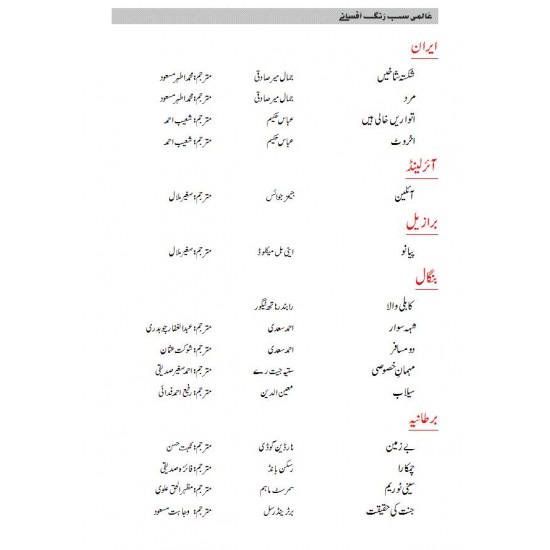 عالمی سب رنگ افسانے
ایران
شکستہ شاخیں جمال میر صادقی مترجم: محمد اطہر مسعود
مرد جمال میر صادقی مترجم: محمد اطہر مسعود
اتواریں خالی ہیں عباس حکیم مترجم: شعیب احمد
اخروٹ عباس حکیم مترجم: شعیب احمد
آئرلینڈ
آئلین جیمز جوائس مترجم: صغیر ملال
برازیل
پیانو اینی بل میکاوڈ مترجم: صغیر ملال
بنگال
کابلی والا رابندر ناتھ ٹیگور
شہسوار احمد سعدی مترجم: عبدالغفار چوہدری
دو مسافر احمد سعدی مترجم: شوکت عثمان
مہمانِ خصوصی ستیہ جیت رے مترجم: احمد صغیر صدیقی
سیلاب معین الدین مترجم: رفیع احمد فدائی
برطانیہ
بے زمین ہارڈین گوڈی مترجم: نگہت حسن
چمکارا رسکن بانڈ مترجم: فائزہ صدیقی
سینی ٹوریم سمرسٹ ماہم مترجم: مظہر الحق علوی
جنت کی حقیقت برٹرینڈ رسل مترجم: وجاہت مسعود